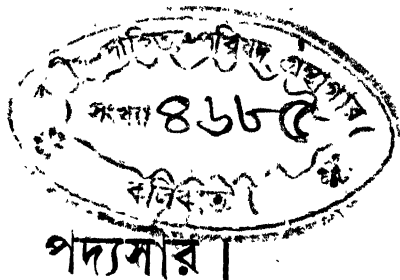 সাহিত্য-পরিষদ গ্রন্থাগার
সংখ্যা ৪৬৮৫
কলিকাতা
পদ্যসার।